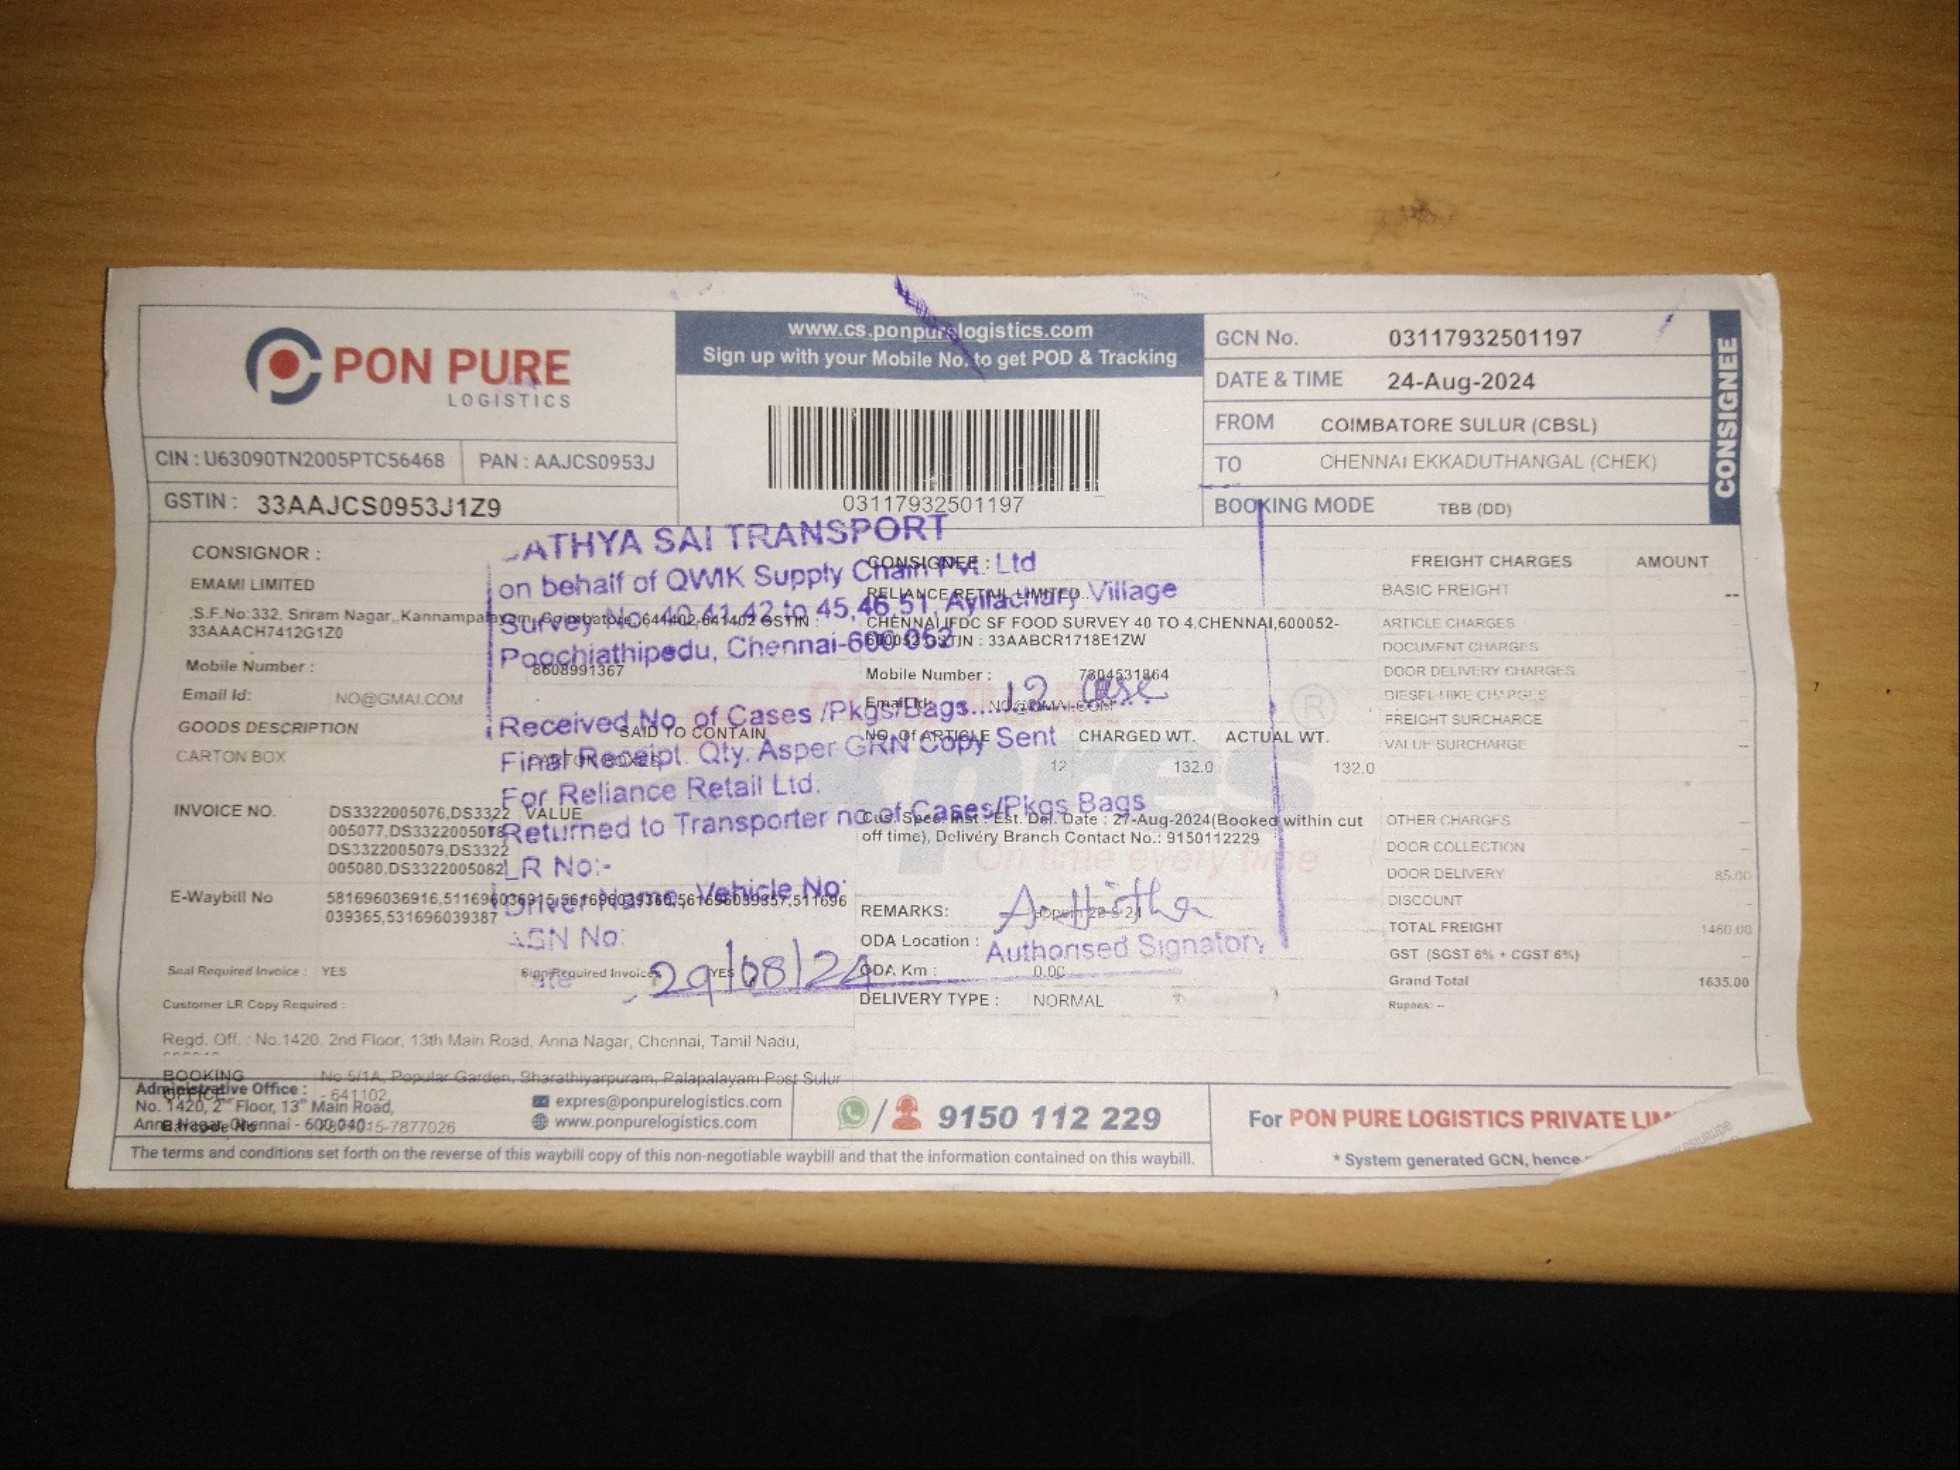 PON PURE
LOGISTICS
www.cs.ponpurelogistics.com
Sign up with your Mobile No. to get POD & Tracking
03117932501197
GCN No. 03117932501197
DATE & TIME 24-Aug-2024
FROM COIMBATORE SULUR (CBSL)
TO CHENNAI EKKADUTHANGAL (CHEK)
BOOKING MODE TBB (DD)
CONSIGNEE
CIN : U63090TN2005PTC56468 PAN : AAJCS0953J
GSTIN : 33AAJCS0953J1Z9
CONSIGNOR :
EMAMI LIMITED
S.F.No:332, Sriram Nagar,,Kannampalayam, Coimbatore,
33AAACH7412G1Z0
Mobile Number : 8608991367
Email Id: NO@GMAI.COM
GOODS DESCRIPTION SAID TO CONTAIN
CARTON BOX
INVOICE NO. DS3322005076,DS3322 VALUE
005077,DS3322005078
DS3322005079,DS3322
005080,DS3322005082
E-Waybill No 581696036916,
039365,531696039387
Seal Required Invoice : YES Sign Required Invoice: YES
Customer LR Copy Required :
Regd. Off. : No.1420, 2nd Floor, 13th Main Road, Anna Nagar, Chennai, Tamil Nadu,
BOOKING No 5/1A, Popular Garden, Bharathiyarpuram, Palapalayam Post Sulur
- 641102
CONSIGNEE :
RELIANCE RETAIL LIMITED..
CHENNAI IFDC SF FOOD SURVEY 40 TO 4,CHENNAI,600052-
600052 GSTIN : 33AABCR1718E1ZW
Mobile Number : 7304531864
Email Id: NO@GMAI.COM
NO. Of ARTICLE CHARGED WT. ACTUAL WT.
12 132.0 132.0
Cus. Spec. Inst : Est. Del. Date : 27-Aug-2024(Booked within cut
off time), Delivery Branch Contact No.: 9150112229
REMARKS:
ODA Location :
ODA Km : 0.00
DELIVERY TYPE : NORMAL
FREIGHT CHARGES AMOUNT
BASIC FREIGHT --
ARTICLE CHARGES
DOCUMENT CHARGES
DOOR DELIVERY CHARGES
DIESEL HIKE CHARGES
FREIGHT SURCHARGE
VALUE SURCHARGE
OTHER CHARGES
DOOR COLLECTION
DOOR DELIVERY 85.00
DISCOUNT
TOTAL FREIGHT 1460.00
GST (SGST 6% + CGST 6%)
Grand Total 1635.00
Rupees: --
SATHYA SAI TRANSPORT
on behalf of QWIK Supply Chain Pvt. Ltd
Survey No. 40,41,42 to 45,46,51, Ayilachury Village
Poochiathipedu, Chennai-600 052
Received No. of Cases /Pkgs/Bags....12 case
Final Receipt. Qty. Asper GRN Copy Sent
For Reliance Retail Ltd.
Returned to Transporter no of Cases/Pkgs Bags
LR No:-
Driver Name, Vehicle No:
ASN No:
Date 29/08/24
Authorised Signatory
On time every time
Administrative Office :
No. 1420, 2nd Floor, 13th Main Road,
Anna Nagar, Chennai - 600 040.
Barcode No 7877015-7877026
expres@ponpurelogistics.com
www.ponpurelogistics.com
/ 9150 112 229
For PON PURE LOGISTICS PRIVATE
* System generated GCN, hence
The terms and conditions set forth on the reverse of this waybill copy of this non-negotiable waybill and that the information contained on this waybill.